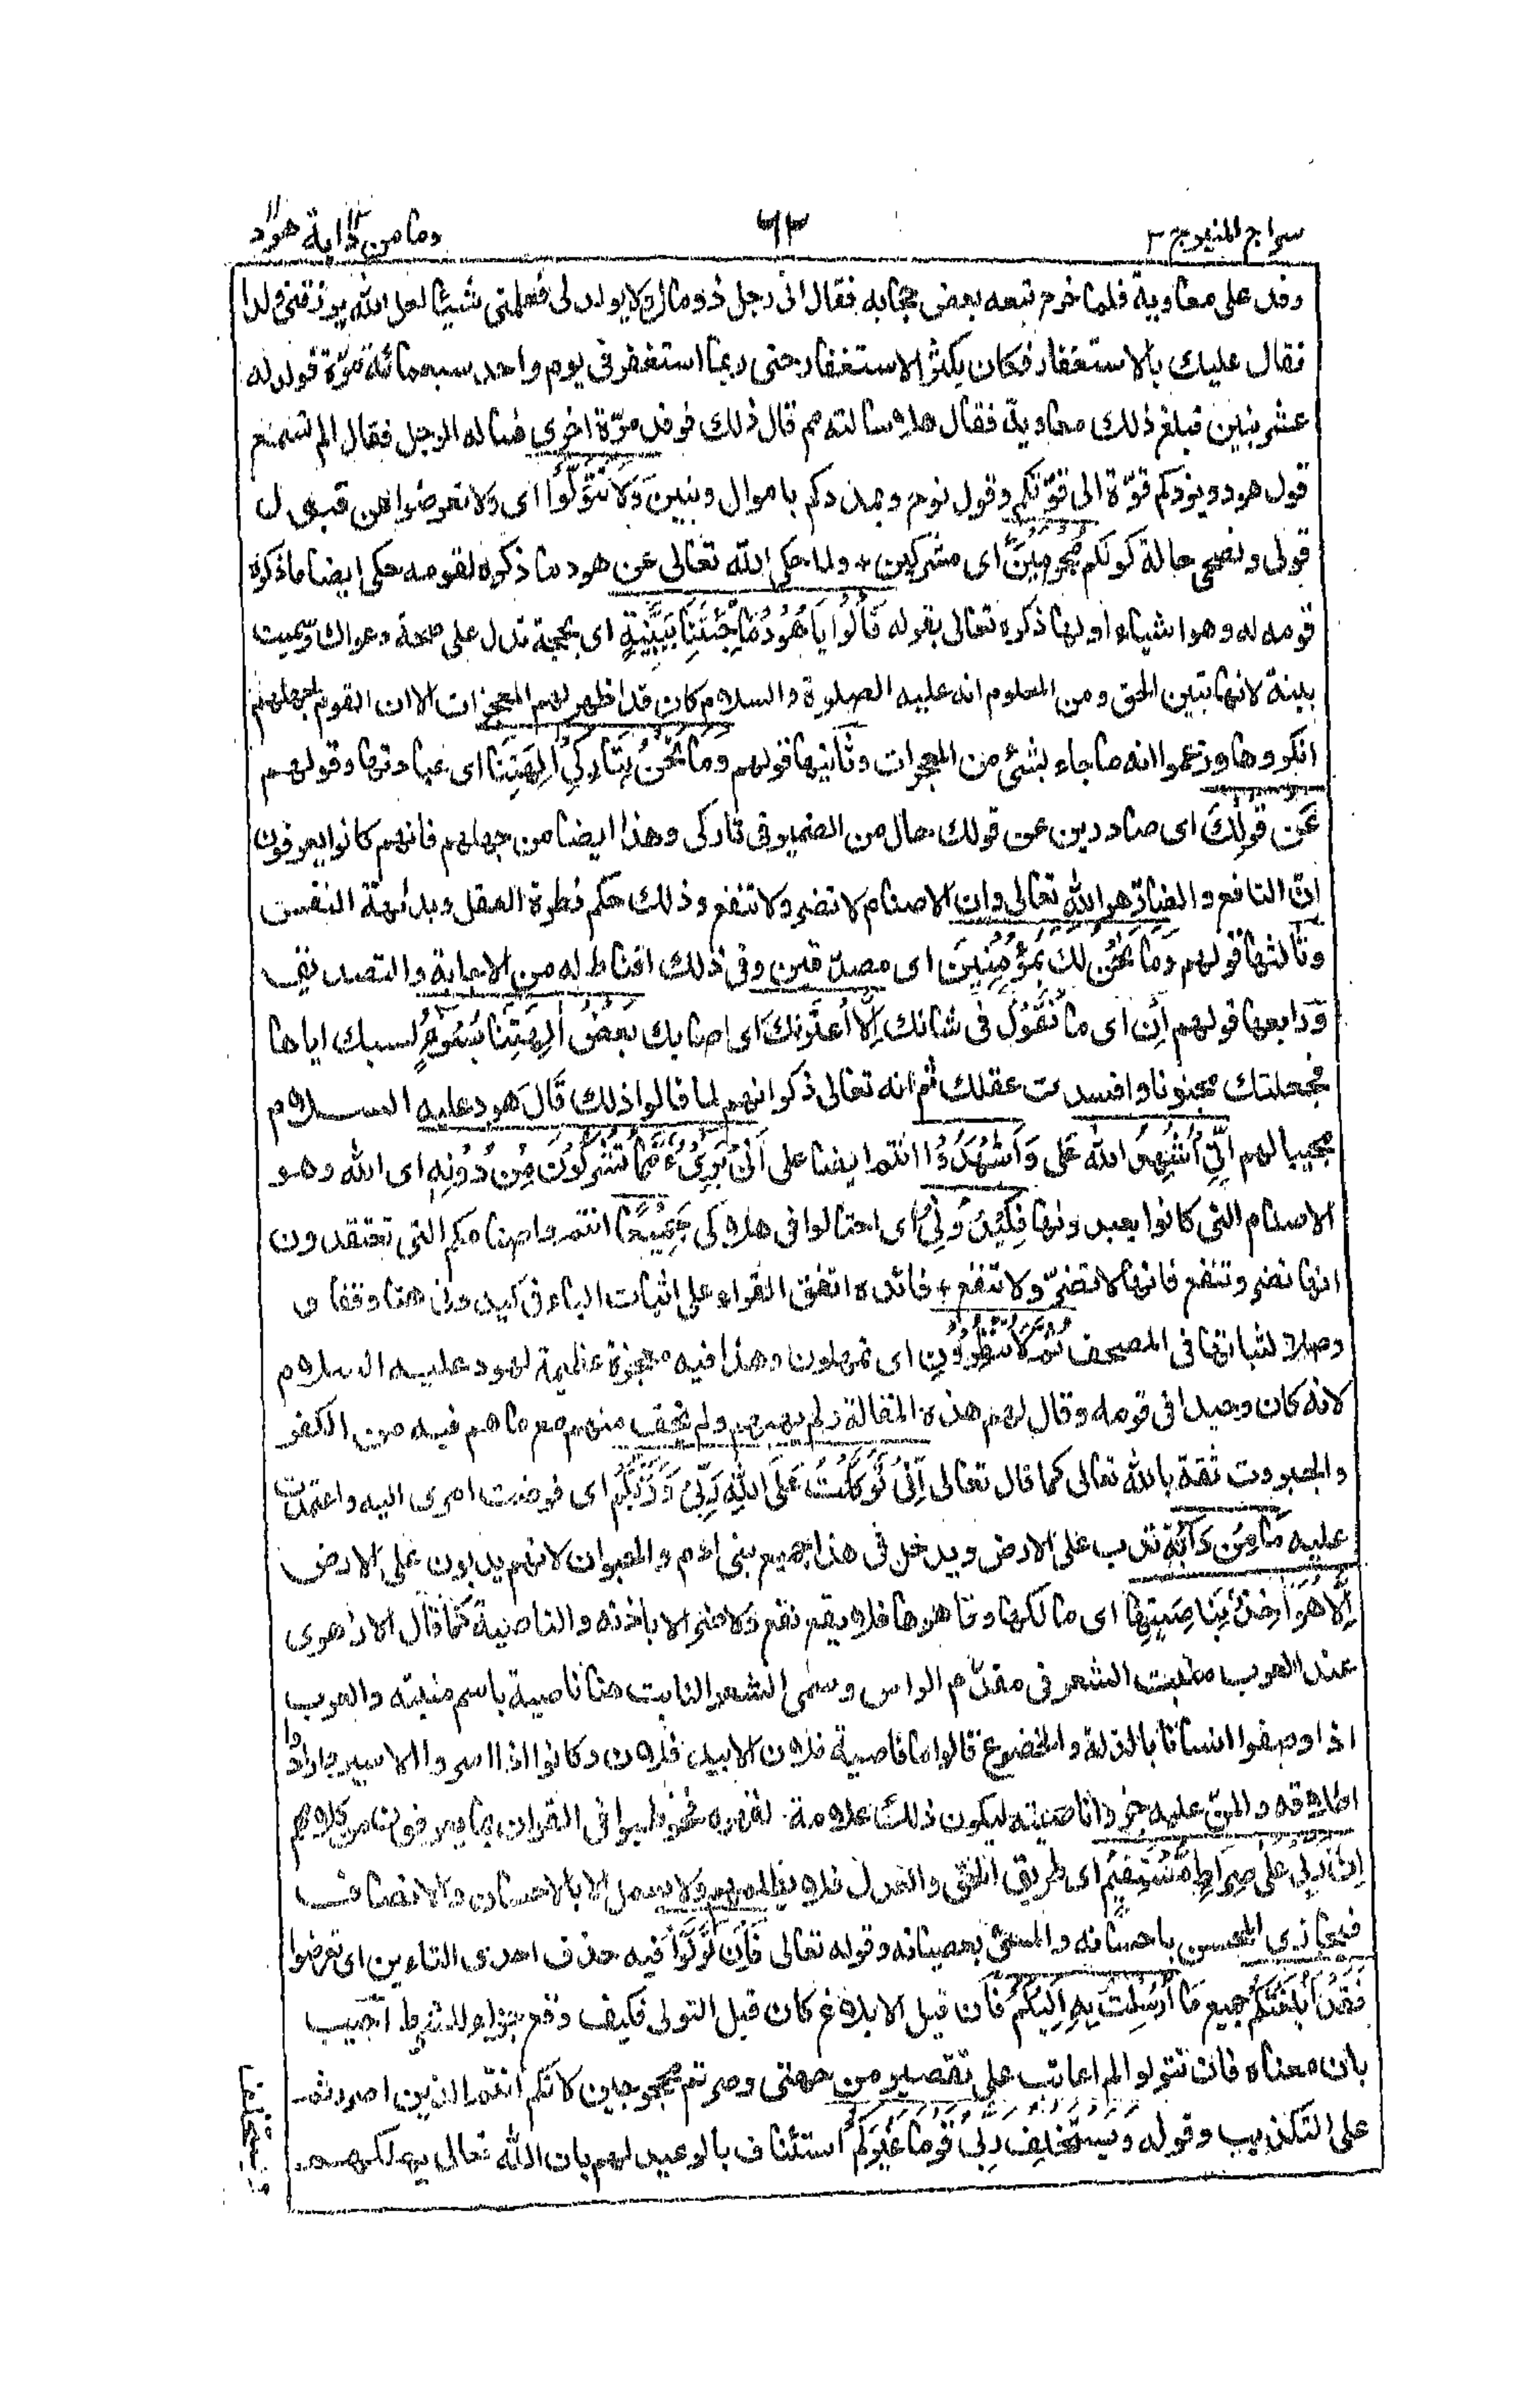 سراج المنير ج ٣
٦٣
وما من دابة ١٢ هود ١١
وفد على معاوية فلما خرج تبعه بعض حجابه فقال انى رجل ذو مال ولا يولد لى فعلمنى شيئا لعل الله يرزقنى ولدا
فقال عليك بالاستغفار فكان يكثر الاستغفار حتى ربما استغفر فى يوم واحد سبعمائة مرّة فولد له
عشر بنين فبلغ ذلك معاوية فقال هلا سالته مم قال ذلك فوفد مرّة اخرى فساله الرجل فقال الم تسمع
قول هود ويزدكم قوّة الى قوّتكم وقول نوح ويمددكم باموال وبنين وَلَا تَتَوَلَّوْا اى ولا تعرضوا عن قبول
قولى ونصحى حالة كونكم مُجْرِمِيْنَ اى مشركين + ولما حكى الله تعالى عن هود ما ذكره لقومه حكى ايضا ما ذكره
قومه له وهو اشياء اولها ذكره تعالى بقوله قَالُوْا يَا هُوْدُ مَا جِئْتَنَا بِبَيِّنَةٍ اى بحجة تدل على صحة دعواك وسميت
بينة لانها تبين الحق ومن المعلوم انه عليه الصلوة والسلام كان قد اظهر لهم المعجزات الا ان القوم لجهلهم
انكروها وزعموا انه ما جاء بشئ من المعجزات وثانيها قولهم وما نَحْنُ بِتَارِكِىْ اٰلِهَتِنَا اى عبادتها وقولهم
عَنْ قَوْلِكَ اى صادرين عن قولك حال من الضمير فى تاركى وهذا ايضا من جهلهم فانهم كانوا يعرفون
انّ النافع والضارّ هو الله تعالى وان الاصنام لا تضر ولا تنفع وذلك حكم فطرة العقل وبدئهة النفس
وثالثها قولهم وَمَا نَحْنُ لَكَ بِمُؤْمِنِيْنَ اى مصدّقين وفى ذلك اقناط له من الاجابة والتصديق
ورابعها قولهم اِنْ اى ما نَّقُوْلُ فى شانك اِلَّا اعْتَرٰىكَ اى اصابك بَعْضُ اٰلِهَتِنَا بِسُوْءٍ لسبك اياها
فجعلتك مجنونا وافسدت عقلك ثم انه تعالى ذكر انهم لما قالوا ذلك قَالَ هود عليه السلام
مجيبا لهم اِنِّىْ اُشْهِدُ الله على وَاشْهَدُوْا انتم ايضا على اَنِّىْ بَرِىْءٌ مِّمَّا تُشْرِكُوْنَ مِنْ دُوْنِهٖ اى الله وهو
الاصنام التى كانوا يعبدونها فَكِيْدُوْنِىْ اى احتالوا فى هلاكى جَمِيْعًا انتم واصنامكم التى تعتقدون
انها تضر وتنفع فانها لا تضرّ ولا تنفع + فائده اتفق القراء على اثبات الياء فى كيدونى هنا وقفا و
وصلا لثباتها فى المصحف ثُمَّ لَا تُنْظِرُوْنِ اى تمهلون وهذا فيه معجزة عظيمة لهود عليه السلام
لانه كان وحيدا فى قومه وقال لهم هذه المقالة ولم يهبهم ولم يخف منهم مع ما هم فيه من الكفر
والجبروت ثقة بالله تعالى كما قال تعالى اِنِّىْ تَوَكَّلْتُ عَلَى اللهِ رَبِّىْ وَرَبِّكُمْ اى فوضت امرى اليه واعتمدت
عليه مَا مِنْ دَآبَّةٍ تدب على الارض ويدخل فى هذا جميع بنى ادم والحيوان لانهم يدبون على الارض
اِلَّا هُوَ اٰخِذٌۢ بِنَاصِيَتِهَا اى مالكها وقاهرها فلا يقع نفع ولا ضر الا باذنه والناصية كما قال الازهرى
عند العرب منبت الشعر فى مقدّم الراس وسمى الشعر النابت هنا ناصية باسم منبته والعرب
اذا وصفوا انسانا بالذلة والخضوع قالوا ما ناصية فلان الا بيد فلان وكانوا اذا اسروا الاسير وارادوا
اطلاقه والمن عليه جزوا ناصيته ليكون ذلك علامة لقهره فخوطبوا فى القران بما يعرفون من كلامهم
اِنَّ رَبِّىْ عَلٰى صِرَاطٍ مُّسْتَقِيْمٍ اى طريق الحق والعدل فلا يظلمهم ولا يعمل الا بالاحسان والانصاف
فيجازى المحسن باحسانه والمسئ بعصيانه وقوله تعالى فَاِنْ تَوَلَّوْا فيه حذف احدى التاءين اى تعرضوا
فَقَدْ اَبْلَغْتُكُمْ جميع مَا اُرْسِلْتُ بِهٖ اِلَيْكُمْ فان قيل الابلاغ كان قبل التولى فكيف وقع جزاء للشرط اجيب
بان معناه فان تتولوا لم اعاتب على تقصير من جهتى وصرتم محجوجين لانكم انتم الذين اصررتم
على التكذيب وقوله وَيَسْتَخْلِفُ رَبِّىْ قَوْمًا غَيْرَكُمْ استئناف بالوعيد لهم بان الله تعالى يهلكهم